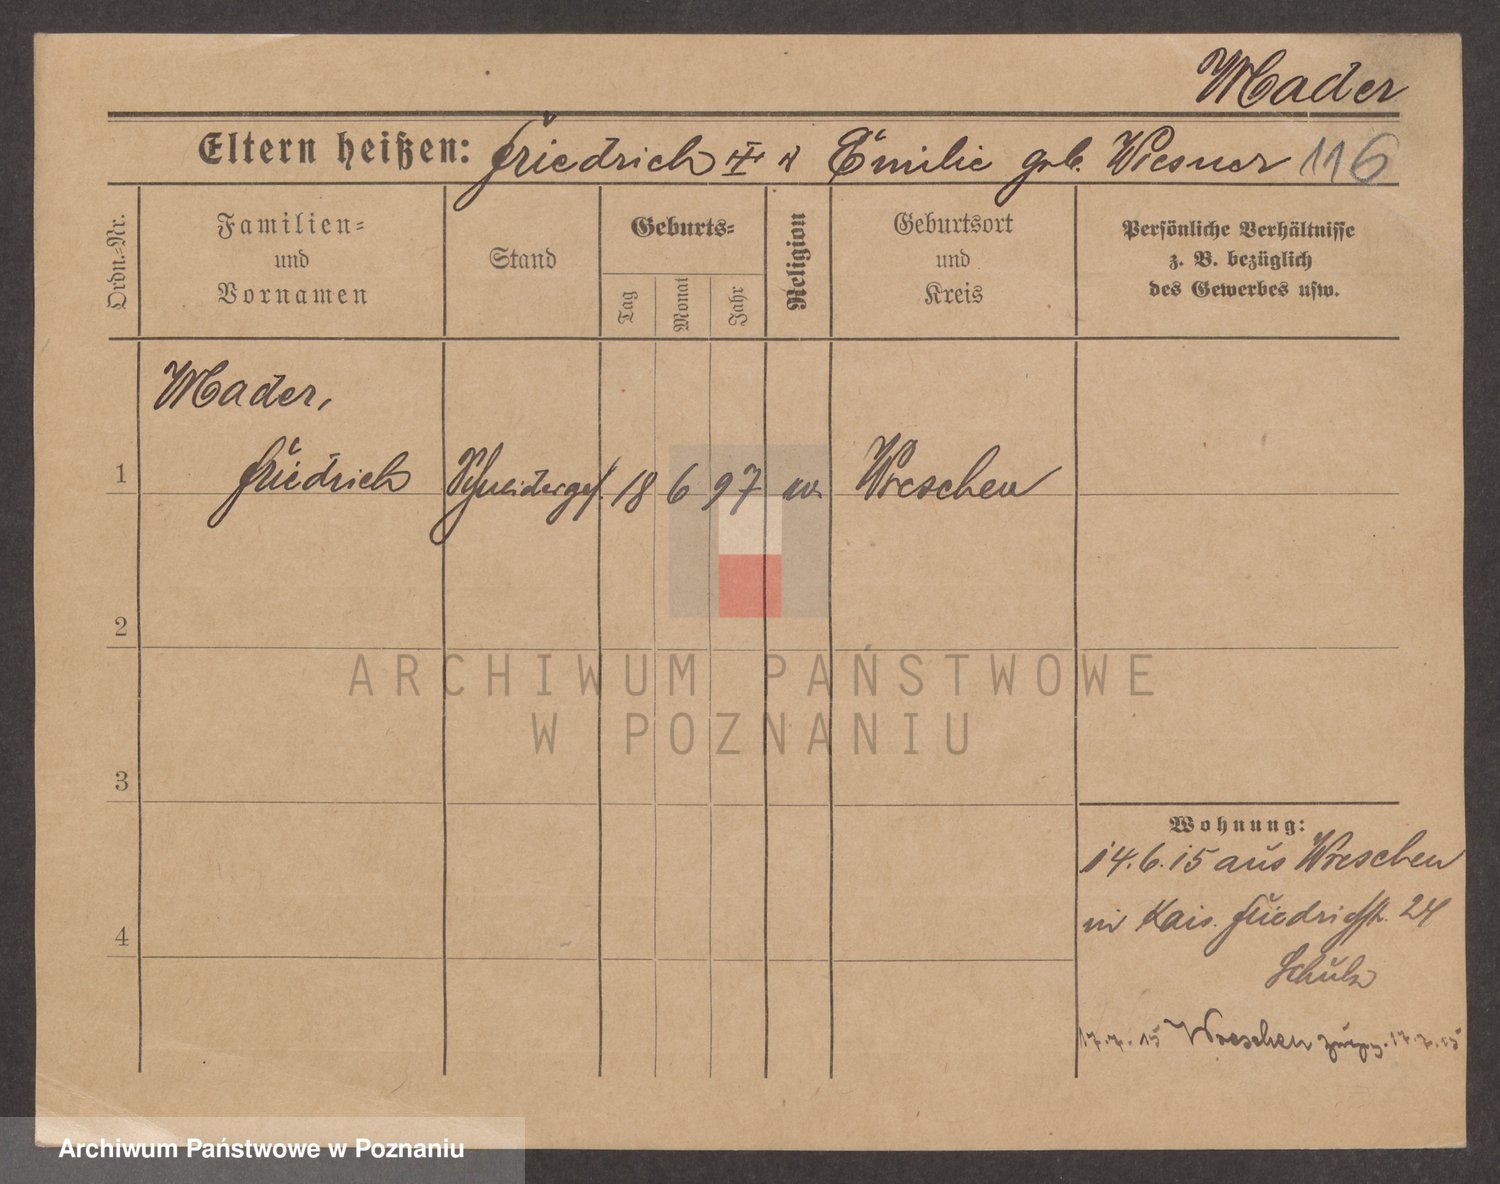 Mader
Eltern heißen: Friedrich u Emilie geb. Wiesner 116
Ordn.-Nr.
Familien-
und
Vornamen
Stand
Geburts-
Tag
Monat
Jahr
Religion
Geburtsort
und
Kreis
Persönliche Verhältnisse
z. B. bezüglich
des Gewerbes usw.
Mader,
1 Friedrich Schneiderges. 18 6 97 Wreschen
2
3
4
Wohnung:
14.6.15 aus Wreschen
in Kais. Friedrichstr. 24
Schulz
17.7.15 Wreschen 17.7.15
ARCHIWUM PAŃSTWOWE
W POZNANIU
Archiwum Państwowe w Poznaniu